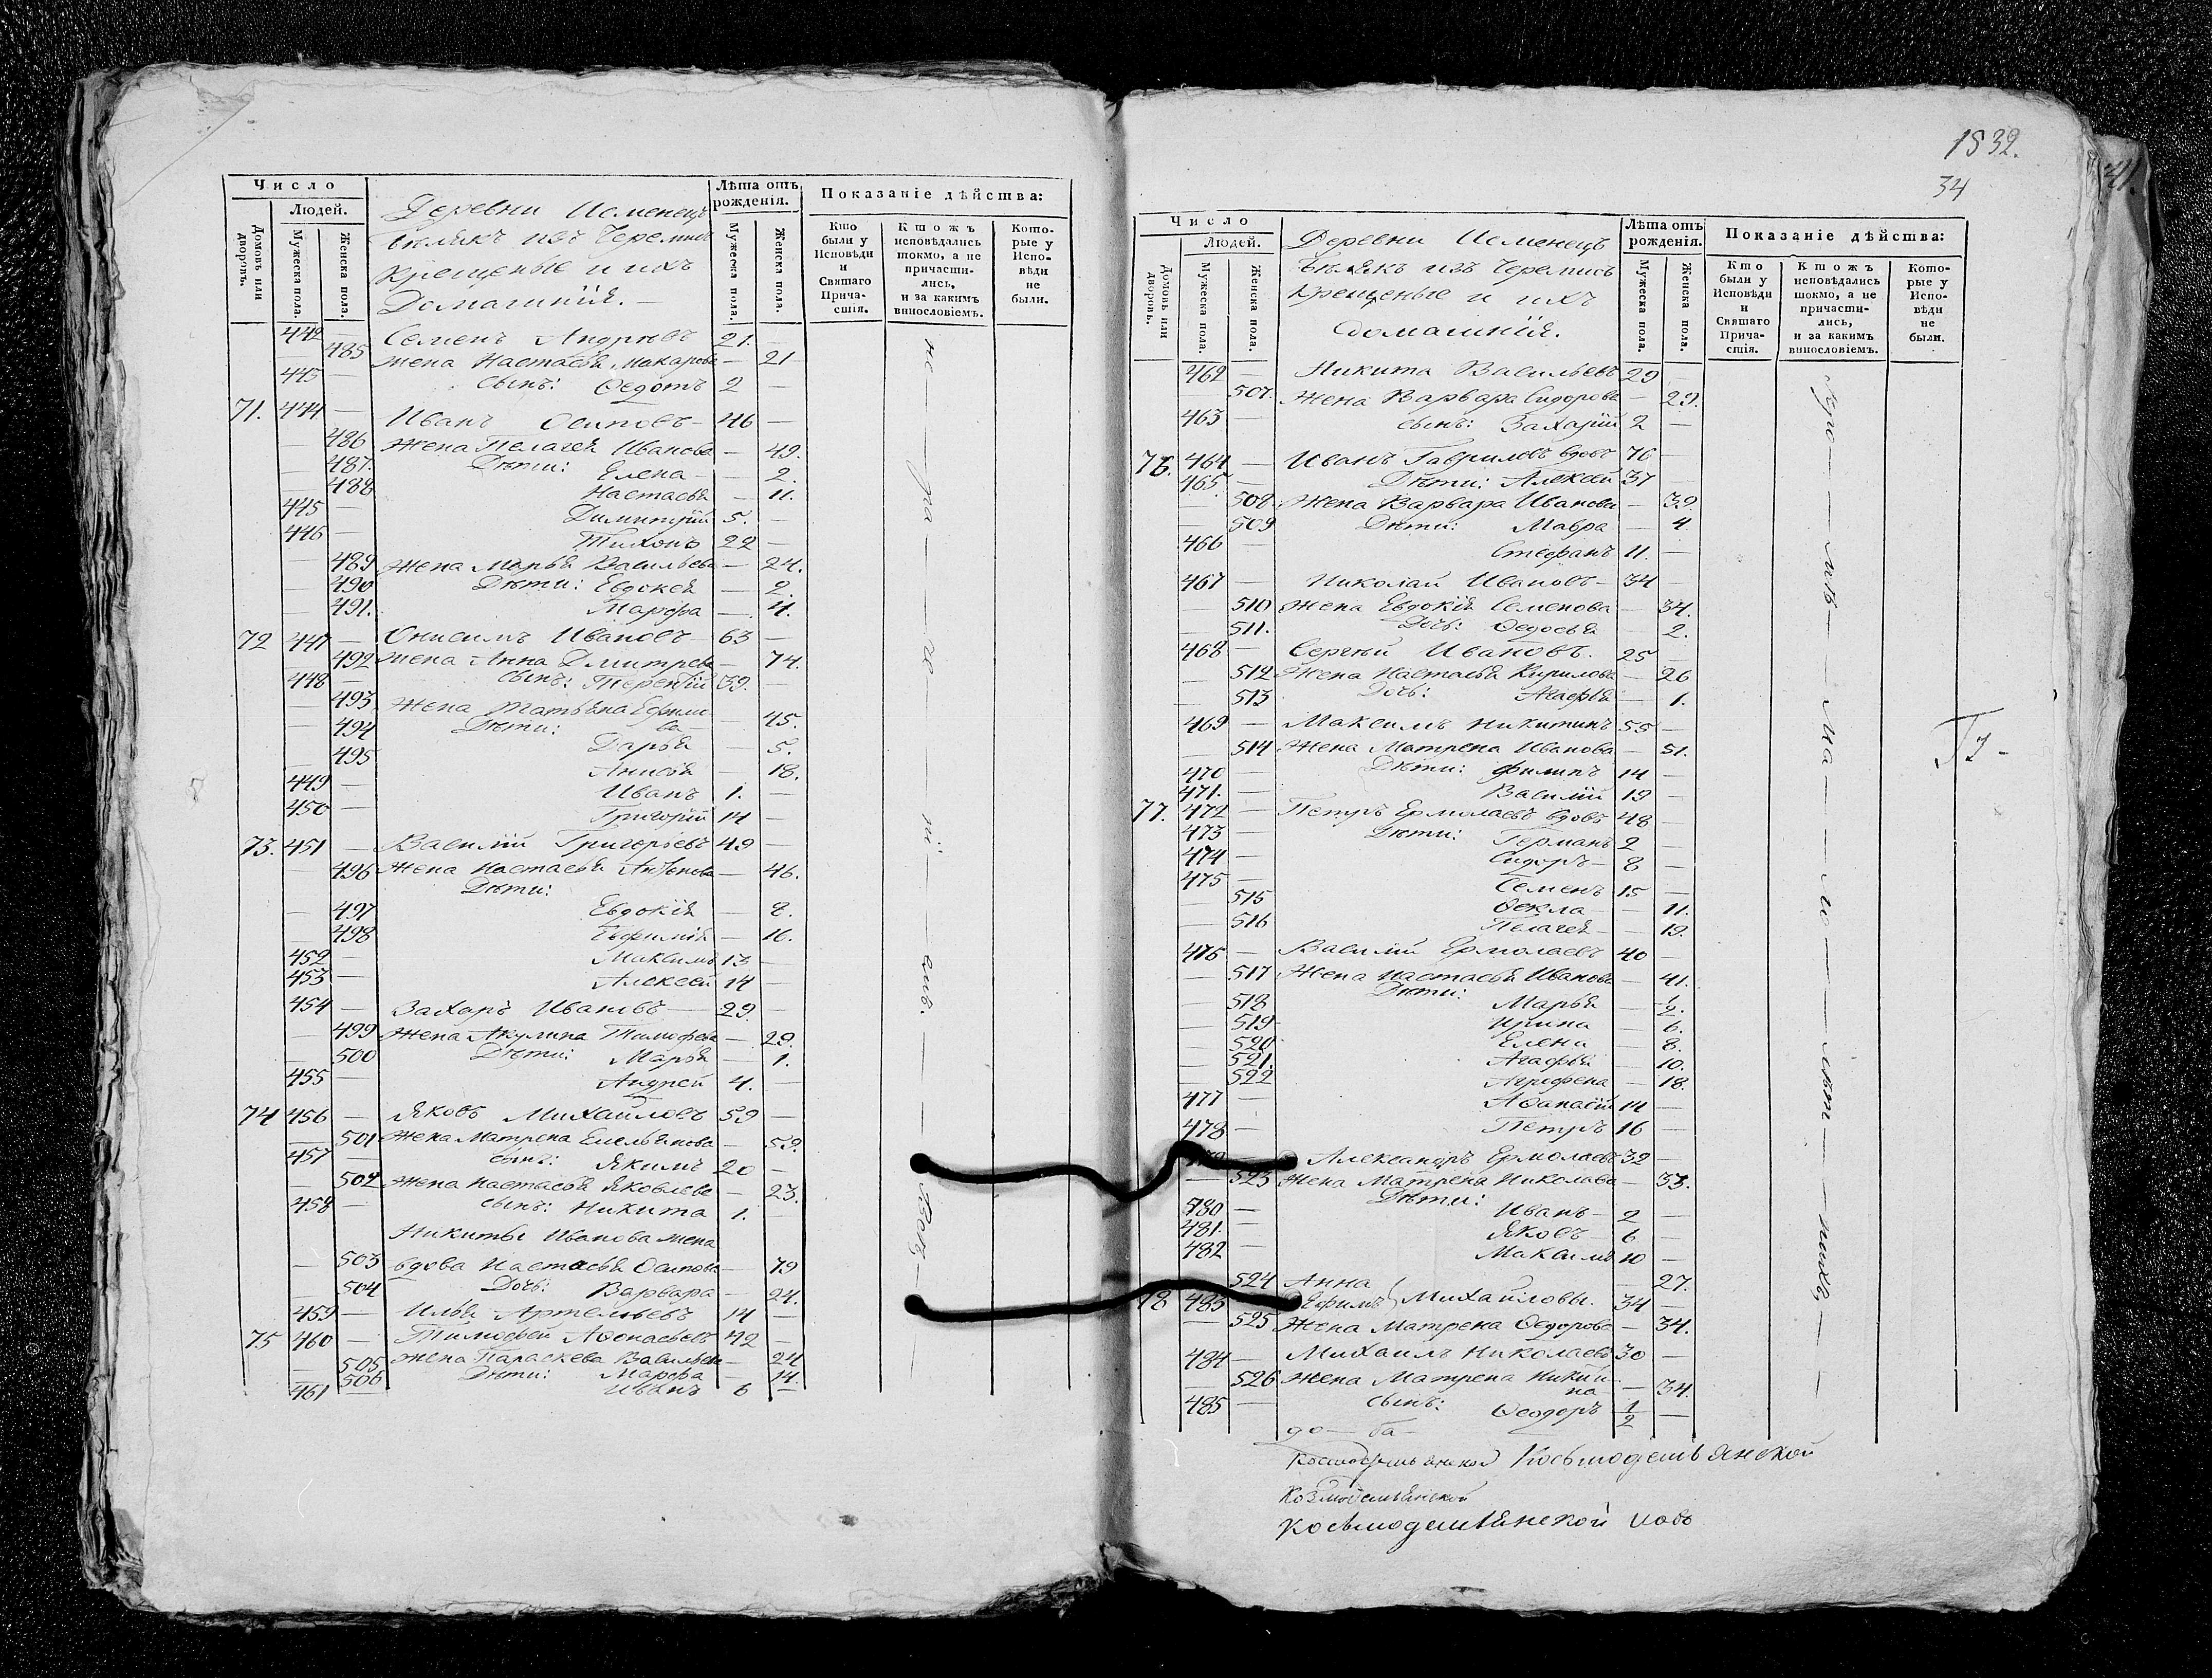 Число
Людей.
Домовъ или дворовъ.
Мужеска пола.
Женска пола.
Деревни Исменецъ
Бѣлякъ изъ Черемисъ
Крещеные и ихъ
Домашнія. —
Лѣта отъ рожденія.
Мужеска пола.
Женска пола.
Показаніе дѣйства:
Кто были у Исповѣди и Святаго Причастія.
Ктожъ исповѣдались токмо, а не причастились, и за какимъ винословіемъ.
Которые у Исповѣди не были.
442 — Семенъ Андреевъ 21. —
— 485 жена Настасья Макарова — 21
443 — сынъ: Ѳедотъ 2 —
71. 444 — Иванъ Осиповъ — 46 —
— 486 Жена Пелагея Иванова — 49.
— 487. Дѣти: Елена — — 2.
— 488 Настасья — 11.
445 — Димитрій 5. —
446 — Тихонъ 22 —
— 489 Жена Марья Васильева — 24.
— 490 Дѣти: Евдокея — 2.
— 491. Марфа — 4.
72 447 — Онисимъ Ивановъ 63 —
— 492 Жена Анна Дмитрева — 74.
448 — сынъ: Терентій 39. —
— 493 Жена Татьяна Ефимова — 45.
— 494 Дѣти: Дарья — 5.
— 495 Анисья — 18.
449 — Иванъ 1. —
450 — Григорій 14 —
73. 451 — Василій Григорьевъ 49 —
— 496 Жена Настасья — 46.
Дѣти:
— 497 Евдокія — 8.
— 498 Евфимія — 16.
452 — Максимъ 13 —
453 — Алексей 14 —
454 — Захаръ Ивановъ — 29. —
— 499 Жена Акулина Тимофева — 29.
— 500 Дѣти: Марья — 1.
455 — Андрей 4. —
74 456 — Яковъ Михайловъ 59 —
— 501 Жена Матрена Емельянова — 59.
457 — сынъ: Якимъ 20 —
— 502 Жена Настасья Яковлева — 23.
458 — сынъ: Никита 1. —
Никиты Иванова жена
— 503 вдова Настасья Осипова — 79
— 504 Дочь: Варвара — 24.
459 — Илья Артемьевъ 14 —
75 460 — Тимофей Аѳонасьевъ 42 —
— 505 Жена Параскева Васильева — 24
— 506 Дѣти: Марфа — 14.
461 — Иванъ 6 —
1832.
34
41.
Число
Людей.
Домовъ или дворовъ.
Мужеска пола.
Женска пола.
Деревни Исменецъ
Бѣлякъ изъ Черемисъ
Крещеные и ихъ
домашнія.
Лѣта отъ рожденія.
Мужеска пола.
Женска пола.
Показаніе дѣйства:
Кто были у Исповѣди и Святаго Причастія.
Ктожъ исповѣдались токмо, а не причастились, и за какимъ винословіемъ.
Которые у Исповѣди не были.
462 — Никита Васильевъ 29 —
— 507. Жена Варвара Сидорова — 29.
463 — сынъ: Захарій 2 —
76. 464 — Иванъ Гавриловъ вдовъ 76 —
465. — Дѣти: Алексей 37 —
— 508 Жена Варвара Иванова — 39.
— 509 Дѣти: Мавра — 4.
466 — Стефанъ 11. —
467 — Николай Ивановъ — 34 —
— 510 Жена Евдокія Семенова — 34.
— 511. Дочь: Ѳедосья — 2.
468 — Сергий Ивановъ. 25 —
— 512 Жена Настасья Кирилова — 26
— 513 Дочь: Агафья — 1.
469 — Максимъ Никитинъ 55 —
— 514 Жена Матрена Иванова — 51.
470 — Дѣти: Филипъ 14 —
471. — Василій 19 —
77. 472 — Петръ Ермолаевъ вдовъ 48 —
473 — Дѣти: Германъ 2 —
474 — Сидоръ — 8 —
475 — Семенъ 15 —
— 515 Ѳекла — 11.
— 516 Пелагея — 19.
476 — Василій Ермолаевъ 40 —
— 517 Жена Настасья Иванова — 41.
— 518 Дѣти: Марья — 1/2.
— 519 Ирина — 6.
— 520 Елена — 8.
— 521. Агафья — 10.
— 522 Агрофена — 18.
477 — Аѳанасій 14 —
478 — Петръ 16 —
Александръ Ермолаевъ 32 —
— 523 Жена Матрена Николаева — 33.
Дѣти:
480 — Иванъ — 2 —
481. — Яковъ — 6 —
482 — Максимъ 10 —
524 Анна — 27.
78 483 Ефимъ } Михайловы. 34 —
— 525 Жена Матрена Ѳедорова — 34.
484 — Михаилъ Николаевъ 30 —
— 526 Жена Матрена — 34.
485 — сынъ: Ѳеодоръ 1/2 —
Космодемьянской Косьмодемьянской
Козмодемьянской
Косьмодемьянской